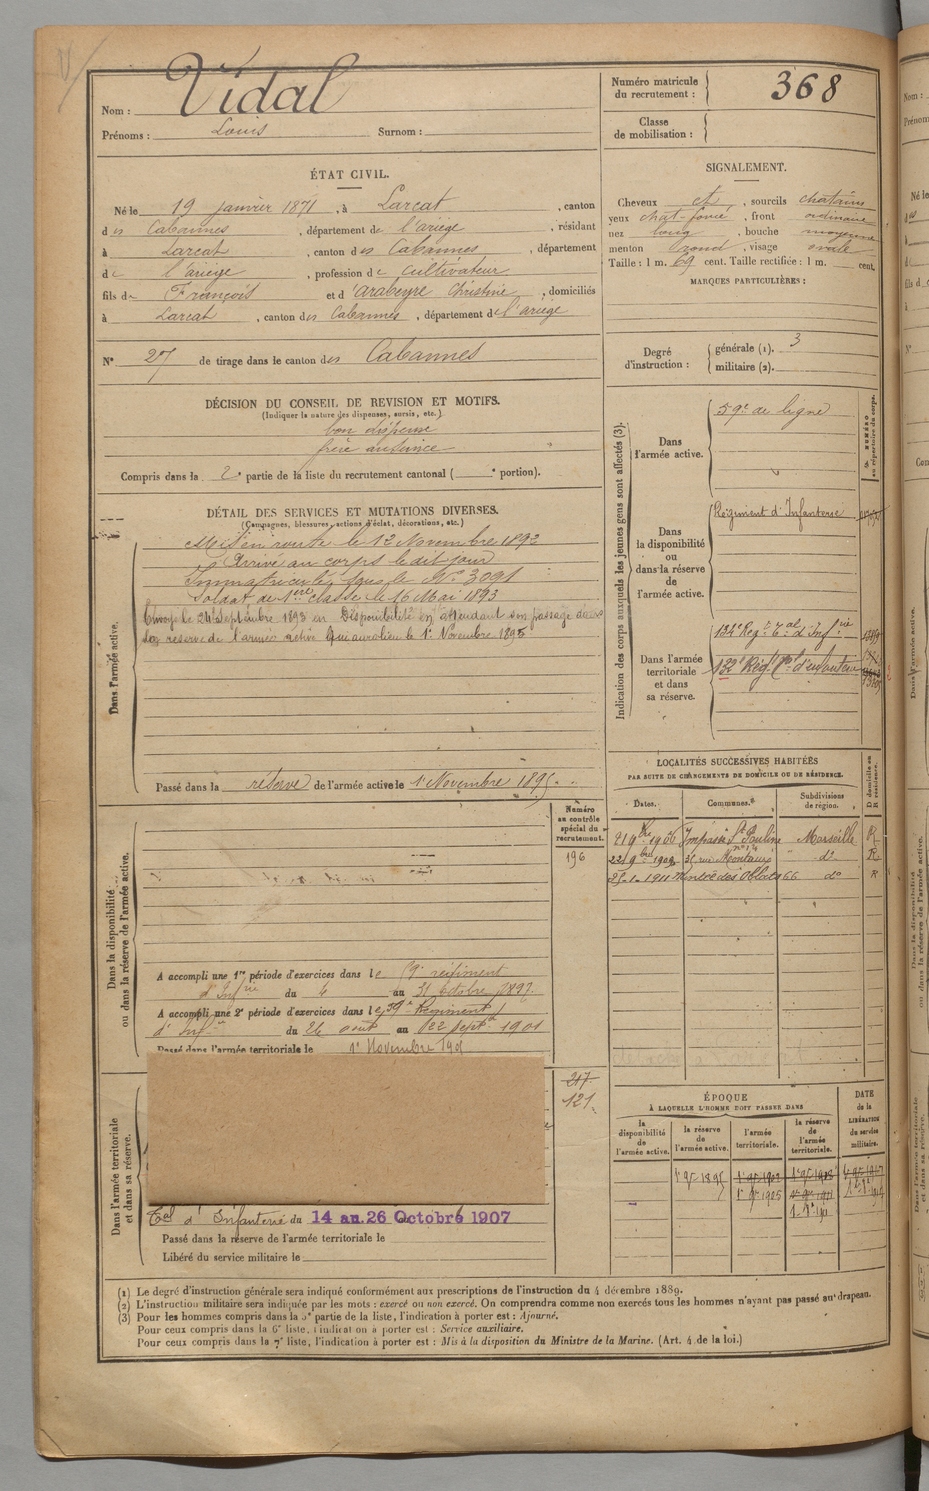 Nom : Vidal
Prénoms : Louis Surnom :
Numéro matricule du recrutement : 368
Classe de mobilisation :
ÉTAT CIVIL.
Né le 19 janvier 1871, à Larcat, canton
des Cabannes, département de l'ariège, résidant
à Larcat, canton des Cabannes, département
de l'ariège, profession de cultivateur
fils de François et d'arabeyre Christine, domiciliés
à Larcat, canton des Cabannes, département de l'ariège
N° 27 de tirage dans le canton des Cabannes
DÉCISION DU CONSEIL DE REVISION ET MOTIFS.
(Indiquer la nature des dispenses, sursis, etc.)
bon dispense
frère
Compris dans la 2e partie de la liste du recrutement cantonal ( e portion).
DÉTAIL DES SERVICES ET MUTATIONS DIVERSES.
(Campagnes, blessures, actions d'éclat, décorations, etc.)
Dans l'armée active.
Mis en route le 12 Novembre 1892
Arrivé au corps le dit jour
Immatriculé sous le N° 3091
Soldat de 1ère classe le 16 Mai 1893
Envoyé le 24 Septembre 1893 en Disponibilité en attendant son passage dans
la réserve de l'armée active qui aura lieu le 1er Novembre 1895
Passé dans la réserve de l'armée active le 1er Novembre 1895
Dans la disponibilité ou dans la réserve de l'armée active.
Numéro au contrôle spécial du recrutement.
196
A accompli une 1re période d'exercices dans le régiment
d'Infrie du 4 au 31 Octobre 1897
A accompli une 2e période d'exercices dans le 59e Régiment
d'Infie du 26 août au 22 Septre 1901
Passé dans l'armée territoriale le 1er Novembre
Dans l'armée territoriale et dans sa réserve.
217
121
Tal d'Infanterie du 14 au 26 Octobre 1907
Passé dans la réserve de l'armée territoriale le
Libéré du service militaire le
SIGNALEMENT.
Cheveux ch, sourcils chatains
yeux chat-foncé, front ordinaire
nez long, bouche moyenne
menton rond, visage ovale
Taille : 1 m. 69 cent. Taille rectifiée : 1 m. cent.
MARQUES PARTICULIÈRES :
Degré d'instruction : générale (1). 3
militaire (2).
Indication des corps auxquels les jeunes gens sont affectés (3).
NUMÉRO au répertoire du corps.
Dans l'armée active.
59e de ligne
Dans la disponibilité ou dans la réserve de l'armée active.
Régiment d'Infanterie
Dans l'armée territoriale et dans sa réserve.
134e Régt Tal d'Infrie
132e Régt Tal d'infanterie
LOCALITÉS SUCCESSIVES HABITÉES
PAR SUITE DE CHANGEMENTS DE DOMICILE OU DE RÉSIDENCE.
Dates. Communes. Subdivisions de région. D domicile ou R résidence.
21 9bre 1906 Impasse Ste Pauline Marseille R
22 9bre 1909 35 rue do R
25-1-1911 des Oblats 66 do R
ÉPOQUE
À LAQUELLE L'HOMME DOIT PASSER DANS
DATE de la LIBÉRATION du service militaire.
la disponibilité de l'armée active.
la réserve de l'armée active.
l'armée territoriale.
la réserve de l'armée territoriale.
1er 9re 1895
1er 9re 1905
(1) Le degré d'instruction générale sera indiqué conformément aux prescriptions de l'instruction du 4 décembre 1889.
(2) L'instruction militaire sera indiquée par les mots : exercé ou non exercé. On comprendra comme non exercés tous les hommes n'ayant pas passé au drapeau.
(3) Pour les hommes compris dans la 5e partie de la liste, l'indication à porter est : Ajourné.
Pour ceux compris dans la 6e liste, l'indication à porter est : Service auxiliaire.
Pour ceux compris dans la 7e liste, l'indication à porter est : Mis à la disposition du Ministre de la Marine. (Art. 4 de la loi.)